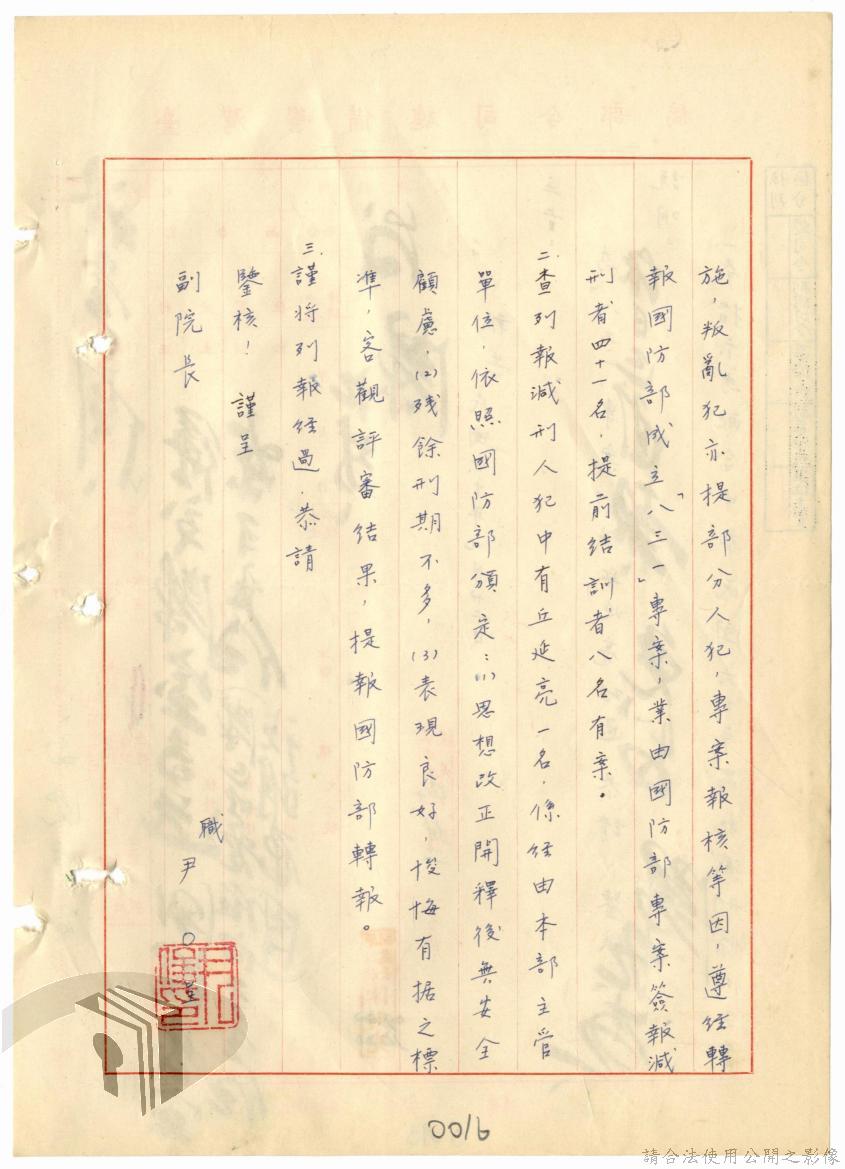 施，叛亂犯亦提部分人犯，專案報核等因，遵經轉
報國防部成立「八三一」專案，業由國防部專案簽報減
刑者四十一名，提前結訓者八名有案。
二、查列報減刑人犯中有丘延亮一名，係經由本部主管
單位，依照國防部頒定：⑴思想改正開釋後無安全
顧慮，⑵殘餘刑期不多，⑶表現良好，悛悔有据之標
準，客觀評審結果，提報國防部轉報。
三、謹將列報經過，恭請
鑒核！　謹呈
副院長
職尹○
0016
請合法使用公開之影像